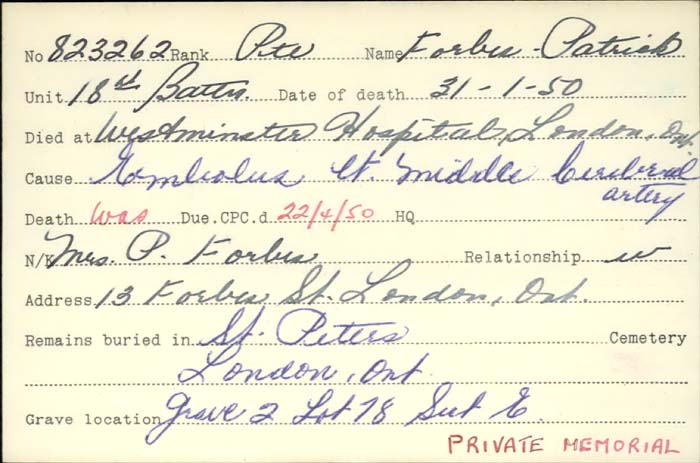 No 823262 Rank Pte Name Forbes - Patrick
Unit 18th Battn. Date of death 31-1-50
Died at Westminster Hospital, London, Ont.
Cause Embolus lt. middle Cerebral
artery
Death Was Due.CPC.d 22/4/50 HQ
N/K Mrs. P. Forbes Relationship w
Address 13 Forbes St. London, Ont.
Remains buried in St. Peters Cemetery
London, Ont
Grave location Grave 2 Lot 78 Sect E.
PRIVATE MEMORIAL